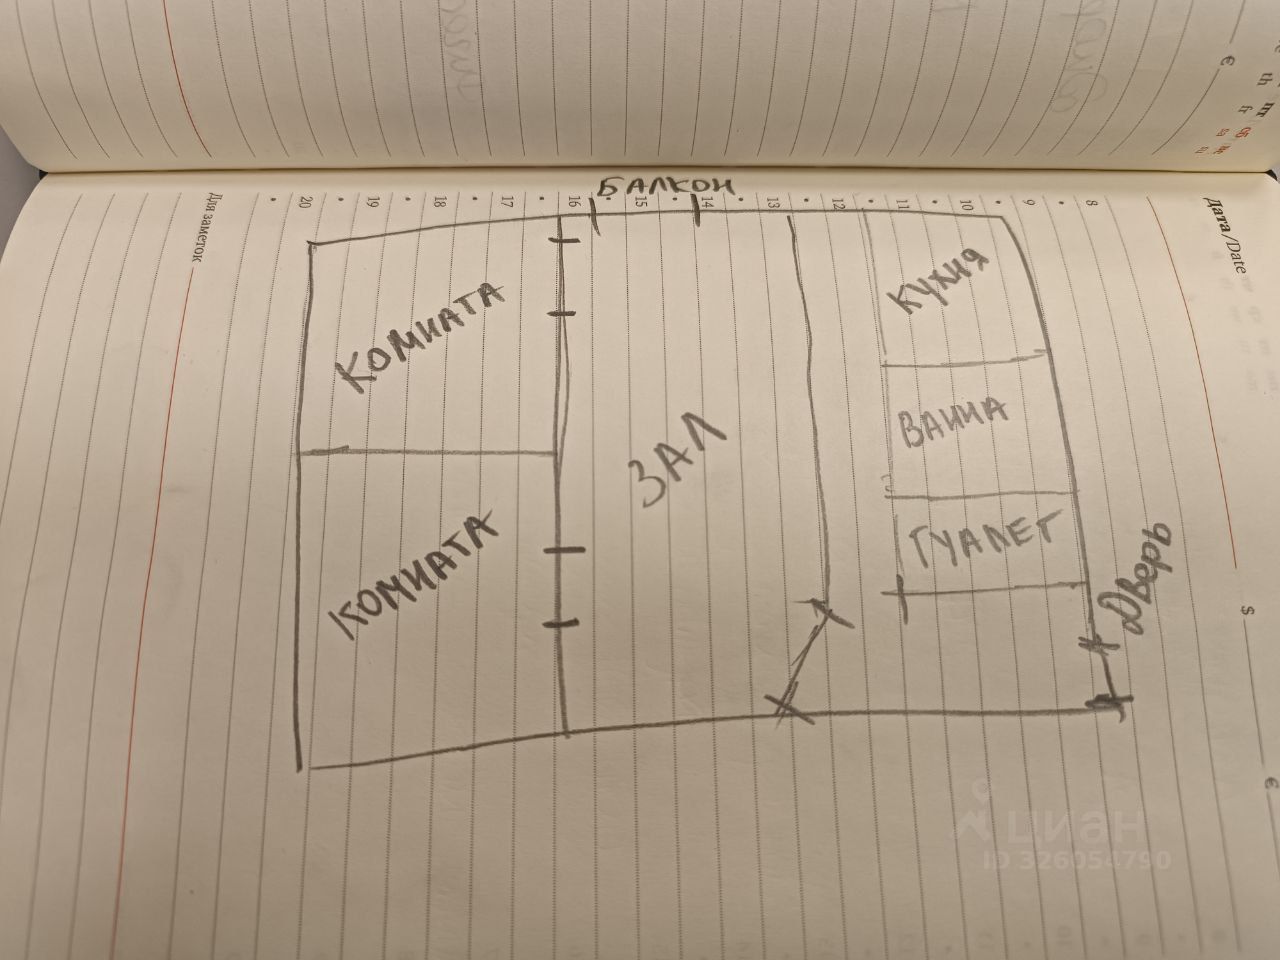 БАЛКОН
КОМНАТА
КУХНЯ
ЗАЛ
ВАННА
КОМНАТА
ТУАЛЕТ
Дверь
Для заметок
20
19
18
17
16
15
14
13
12
11
10
9
8
Дата/Date
€
th
fr
$
€
циан
ID 326054790